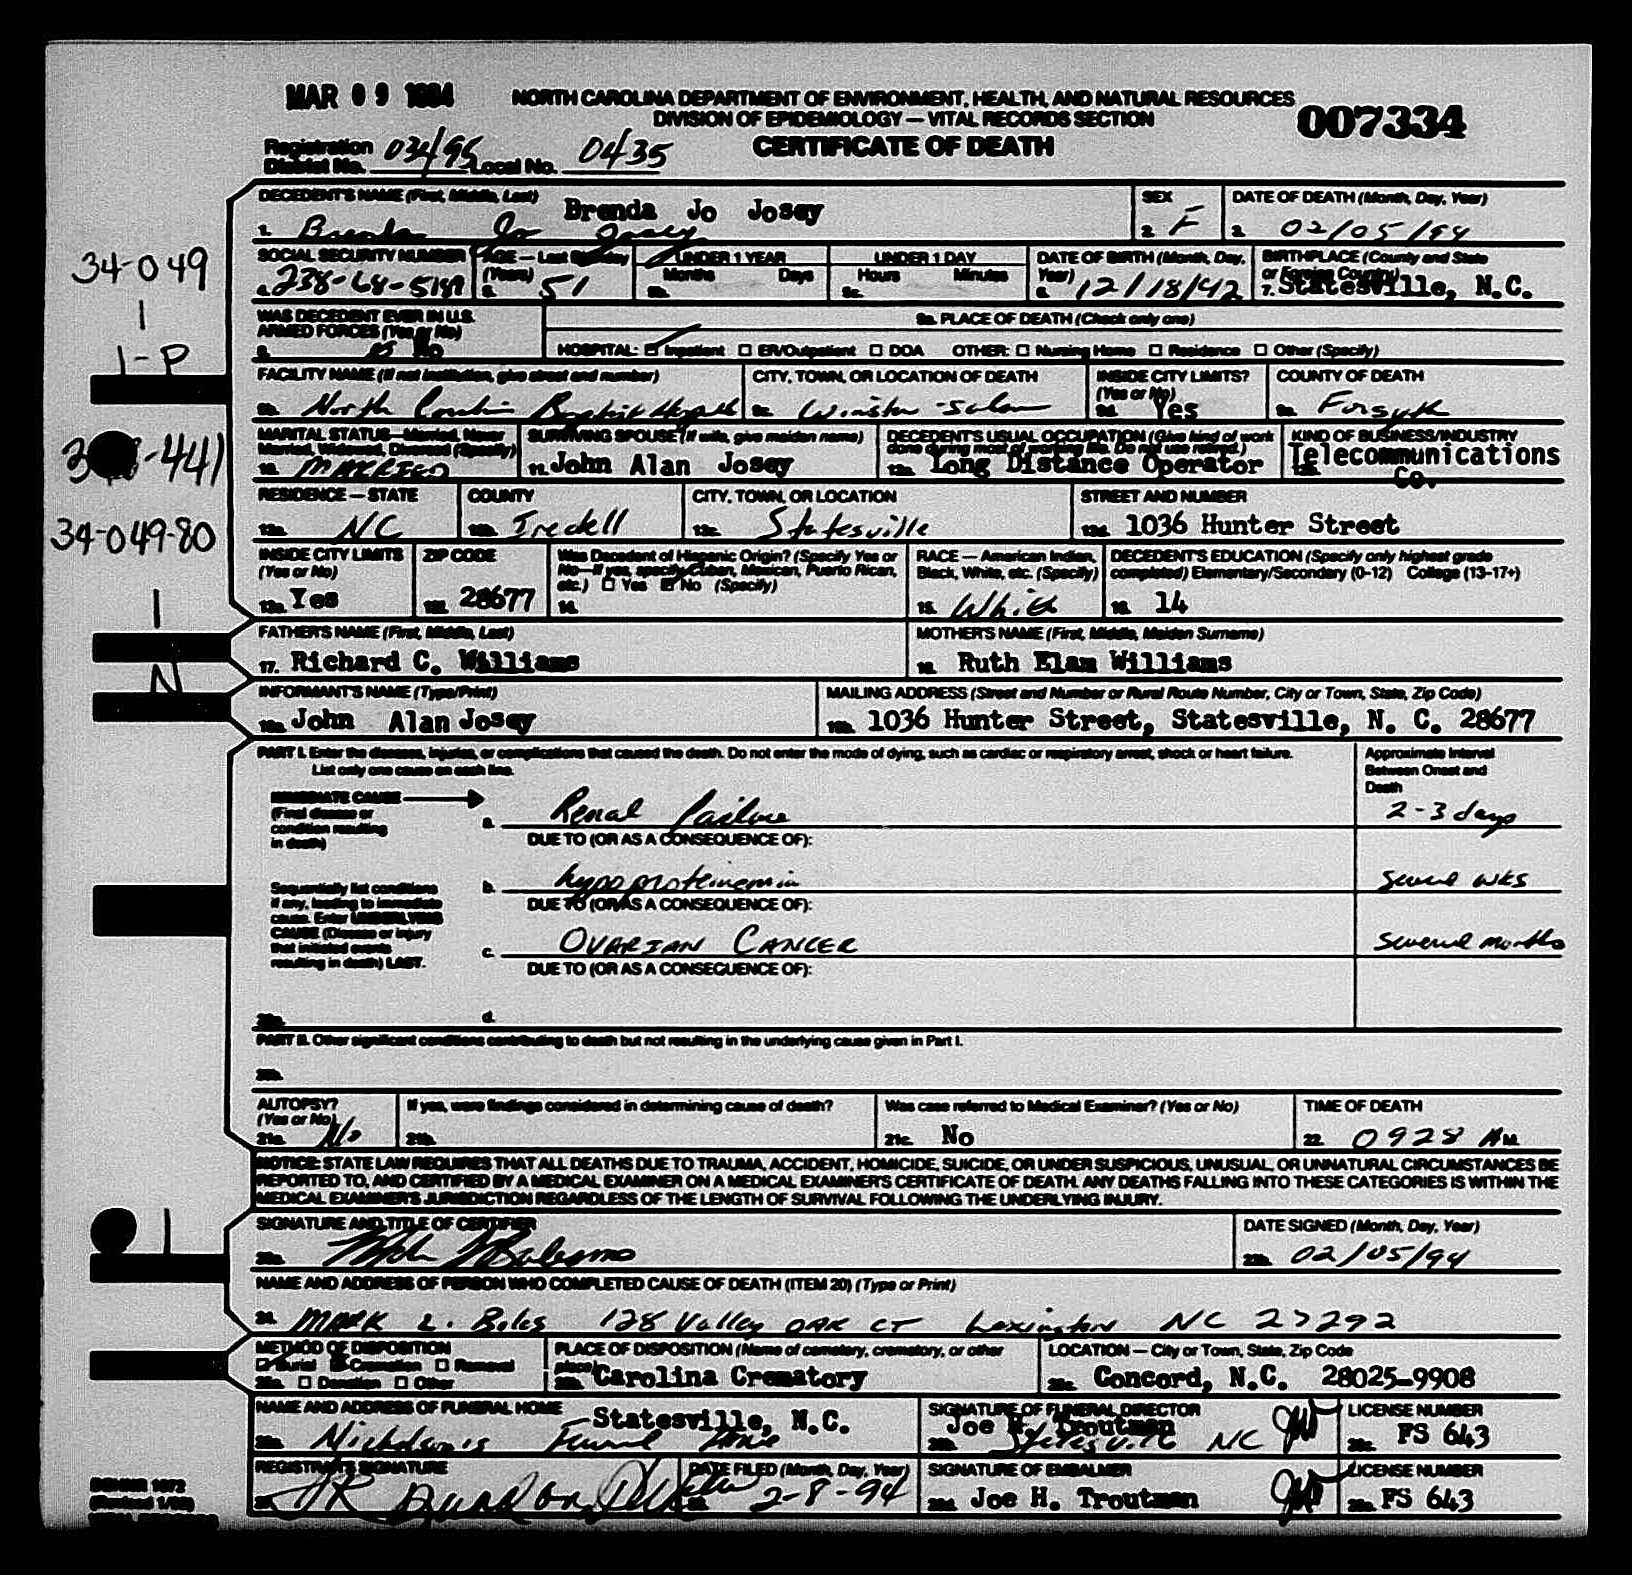 MAR 09 1994
NORTH CAROLINA DEPARTMENT OF ENVIRONMENT, HEALTH, AND NATURAL RESOURCES
DIVISION OF EPIDEMIOLOGY — VITAL RECORDS SECTION
007334
CERTIFICATE OF DEATH
Registration District No. Local No. 0435
DECEDENT'S NAME (First, Middle, Last) Brenda Jo Josey
1. Brenda Jo Josey
SEX 2. F
DATE OF DEATH (Month, Day, Year) 02/05/94
SOCIAL SECURITY NUMBER
AGE — Last Birthday (Years) 51
UNDER 1 YEAR Months Days
UNDER 1 DAY Hours Minutes
DATE OF BIRTH (Month, Day, Year) 12/18/42
BIRTHPLACE (County and State or Foreign Country) 7. Statesville, N.C.
34-049
1
1-P
WAS DECEDENT EVER IN U.S. ARMED FORCES (Yes or No) No
9a. PLACE OF DEATH (Check only one)
HOSPITAL: Inpatient ER/Outpatient DOA OTHER: Nursing Home Residence Other (Specify)
FACILITY NAME (If not institution, give street and number) 9b. North Carolina Baptist Hospital
CITY, TOWN, OR LOCATION OF DEATH 9c. Winston-Salem
INSIDE CITY LIMITS? (Yes or No) 9d. Yes
COUNTY OF DEATH 9e. Forsyth
-441
MARITAL STATUS—Married, Never Married, Widowed, Divorced (Specify) 10. MARRIED
SURVIVING SPOUSE (If wife, give maiden name) 11. John Alan Josey
DECEDENT'S USUAL OCCUPATION (Give kind of work done during most of working life. Do not use retired.) 12a. Long Distance Operator
KIND OF BUSINESS/INDUSTRY Telecommunications Co.
34-049-80
RESIDENCE — STATE 13a. NC
COUNTY 13b. Iredell
CITY, TOWN, OR LOCATION 13c. Statesville
STREET AND NUMBER 13d. 1036 Hunter Street
INSIDE CITY LIMITS (Yes or No) 13e. Yes
ZIP CODE 13f. 28677
Was Decedent of Hispanic Origin? (Specify Yes or No—If yes, specify Cuban, Mexican, Puerto Rican, etc.) Yes No (Specify) 14.
RACE — American Indian, Black, White, etc. (Specify) 15. White
DECEDENT'S EDUCATION (Specify only highest grade completed) Elementary/Secondary (0-12) College (13-17+) 16. 14
1
N
FATHER'S NAME (First, Middle, Last) 17. Richard C. Williams
MOTHER'S NAME (First, Middle, Maiden Surname) 18. Ruth Elam Williams
INFORMANT'S NAME (Type/Print) 19a. John Alan Josey
MAILING ADDRESS (Street and Number or Rural Route Number, City or Town, State, Zip Code) 19b. 1036 Hunter Street, Statesville, N. C. 28677
PART I. Enter the diseases, injuries, or complications that caused the death. Do not enter the mode of dying, such as cardiac or respiratory arrest, shock or heart failure.
List only one cause on each line.
Approximate Interval Between Onset and Death
IMMEDIATE CAUSE (Final disease or condition resulting in death)
a. Renal Failure 2-3 days
DUE TO (OR AS A CONSEQUENCE OF):
Sequentially list conditions if any, leading to immediate cause. Enter UNDERLYING CAUSE (Disease or injury that initiated events resulting in death) LAST.
b. hypoproteinemia several wks
DUE TO (OR AS A CONSEQUENCE OF):
c. OVARIAN CANCER several months
DUE TO (OR AS A CONSEQUENCE OF):
d.
PART II. Other significant conditions contributing to death but not resulting in the underlying cause given in Part I.
20b.
AUTOPSY? (Yes or No) 21a. No
If yes, were findings considered in determining cause of death? 21b.
Was case referred to Medical Examiner? (Yes or No) 21c. No
TIME OF DEATH 22. 0928 AM
NOTICE: STATE LAW REQUIRES THAT ALL DEATHS DUE TO TRAUMA, ACCIDENT, HOMICIDE, SUICIDE, OR UNDER SUSPICIOUS, UNUSUAL, OR UNNATURAL CIRCUMSTANCES BE
REPORTED TO, AND CERTIFIED BY A MEDICAL EXAMINER ON A MEDICAL EXAMINER'S CERTIFICATE OF DEATH. ANY DEATHS FALLING INTO THESE CATEGORIES IS WITHIN THE
MEDICAL EXAMINER'S JURISDICTION REGARDLESS OF THE LENGTH OF SURVIVAL FOLLOWING THE UNDERLYING INJURY.
1
SIGNATURE AND TITLE OF CERTIFIER 23a.
DATE SIGNED (Month, Day, Year) 23b. 02/05/94
NAME AND ADDRESS OF PERSON WHO COMPLETED CAUSE OF DEATH (ITEM 20) (Type or Print)
24. MARK L. 128 Valley OAK CT Lexington NC 27292
METHOD OF DISPOSITION Burial Cremation Removal
25a. Donation Other
PLACE OF DISPOSITION (Name of cemetery, crematory, or other place) 25b. Carolina Crematory
LOCATION — City or Town, State, Zip Code 25c. Concord, N.C. 28025-9908
NAME AND ADDRESS OF FUNERAL HOME Statesville, N.C.
26a. Nicholson's Funeral Home Statesville NC
SIGNATURE OF FUNERAL DIRECTOR Joe H. Troutman
LICENSE NUMBER FS 643
REGISTRAR'S SIGNATURE
DATE FILED (Month, Day, Year) 2-8-94
SIGNATURE OF EMBALMER Joe H. Troutman
LICENSE NUMBER FS 643